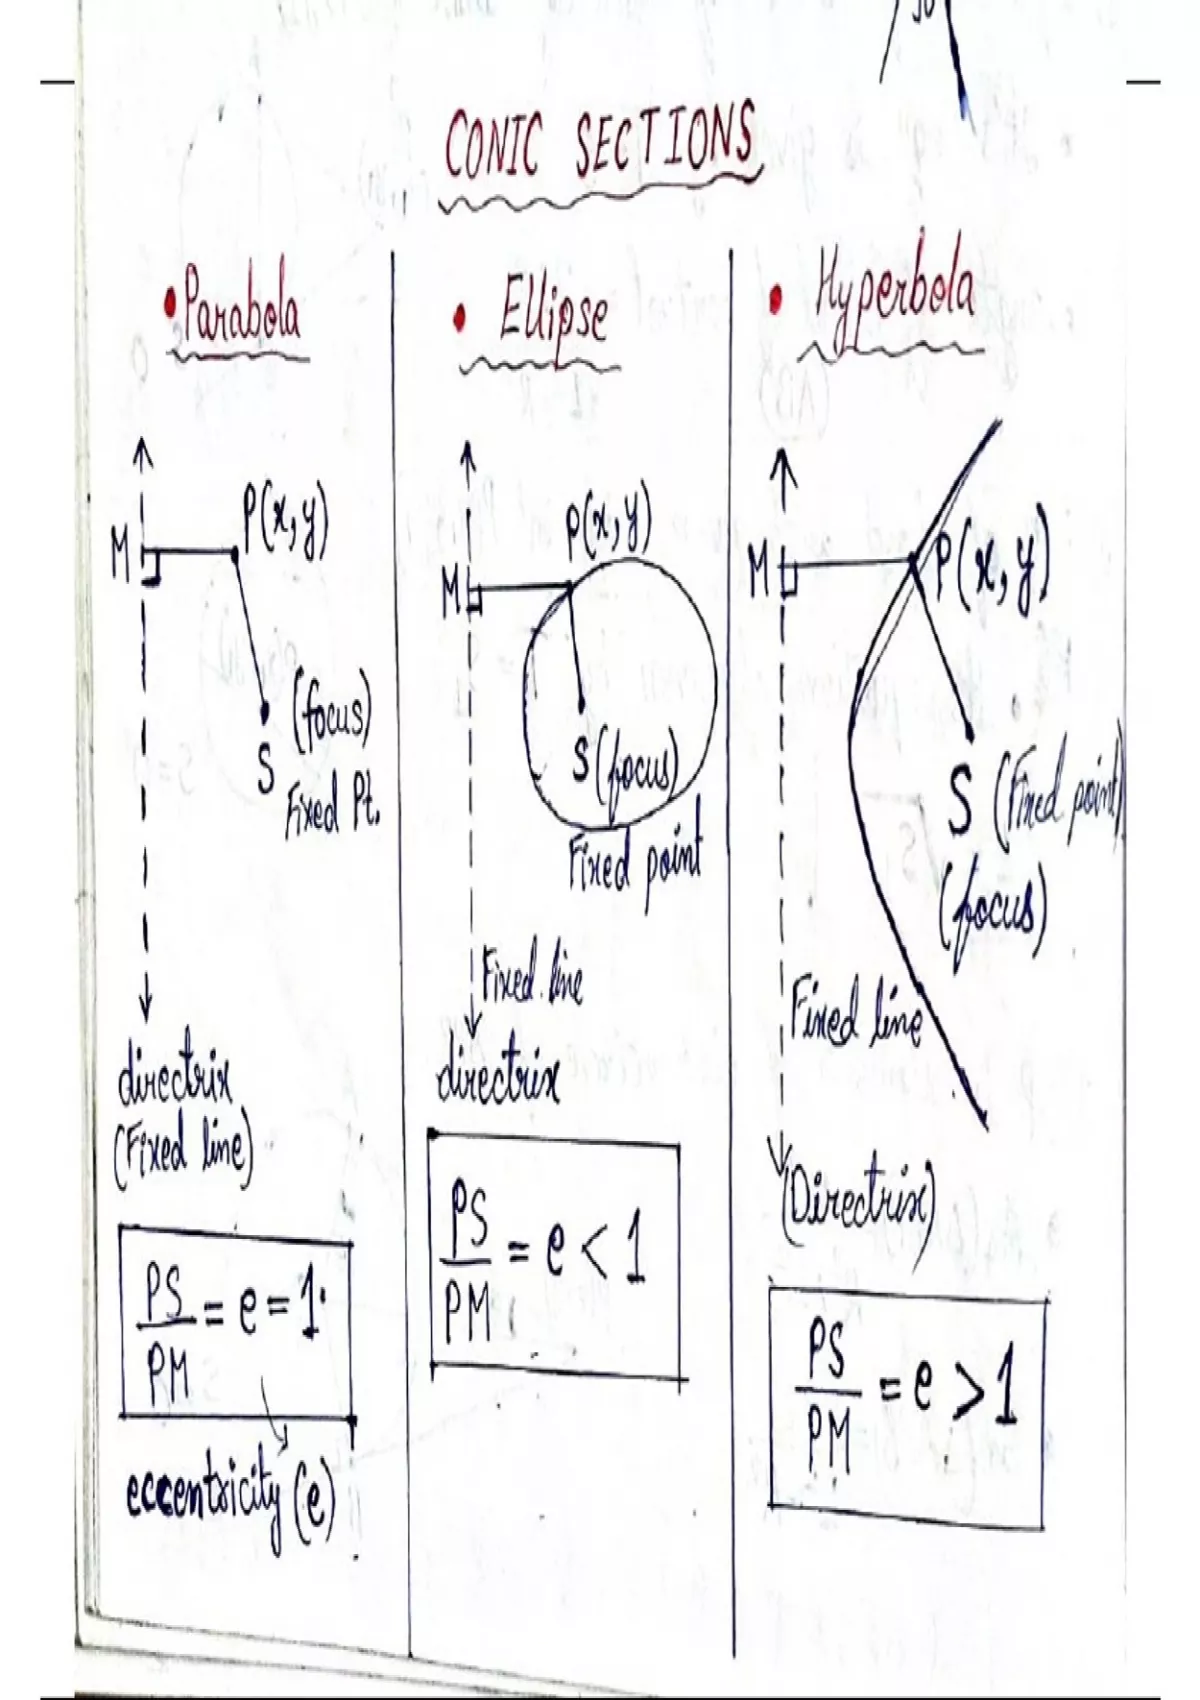 CONIC SECTIONS
• Parabola
M
P(x, y)
(focus)
S
Fixed Pt.
directrix
(Fixed line)
PS/PM = e = 1.
eccentricity (e)
• Ellipse
P(x, y)
M
S (focus)
Fixed point
Fixed line
directrix
PS/PM = e < 1
• Hyperbola
M
P(x, y)
S (Fixed point)
(focus)
Fixed line
(Directrix)
PS/PM = e > 1